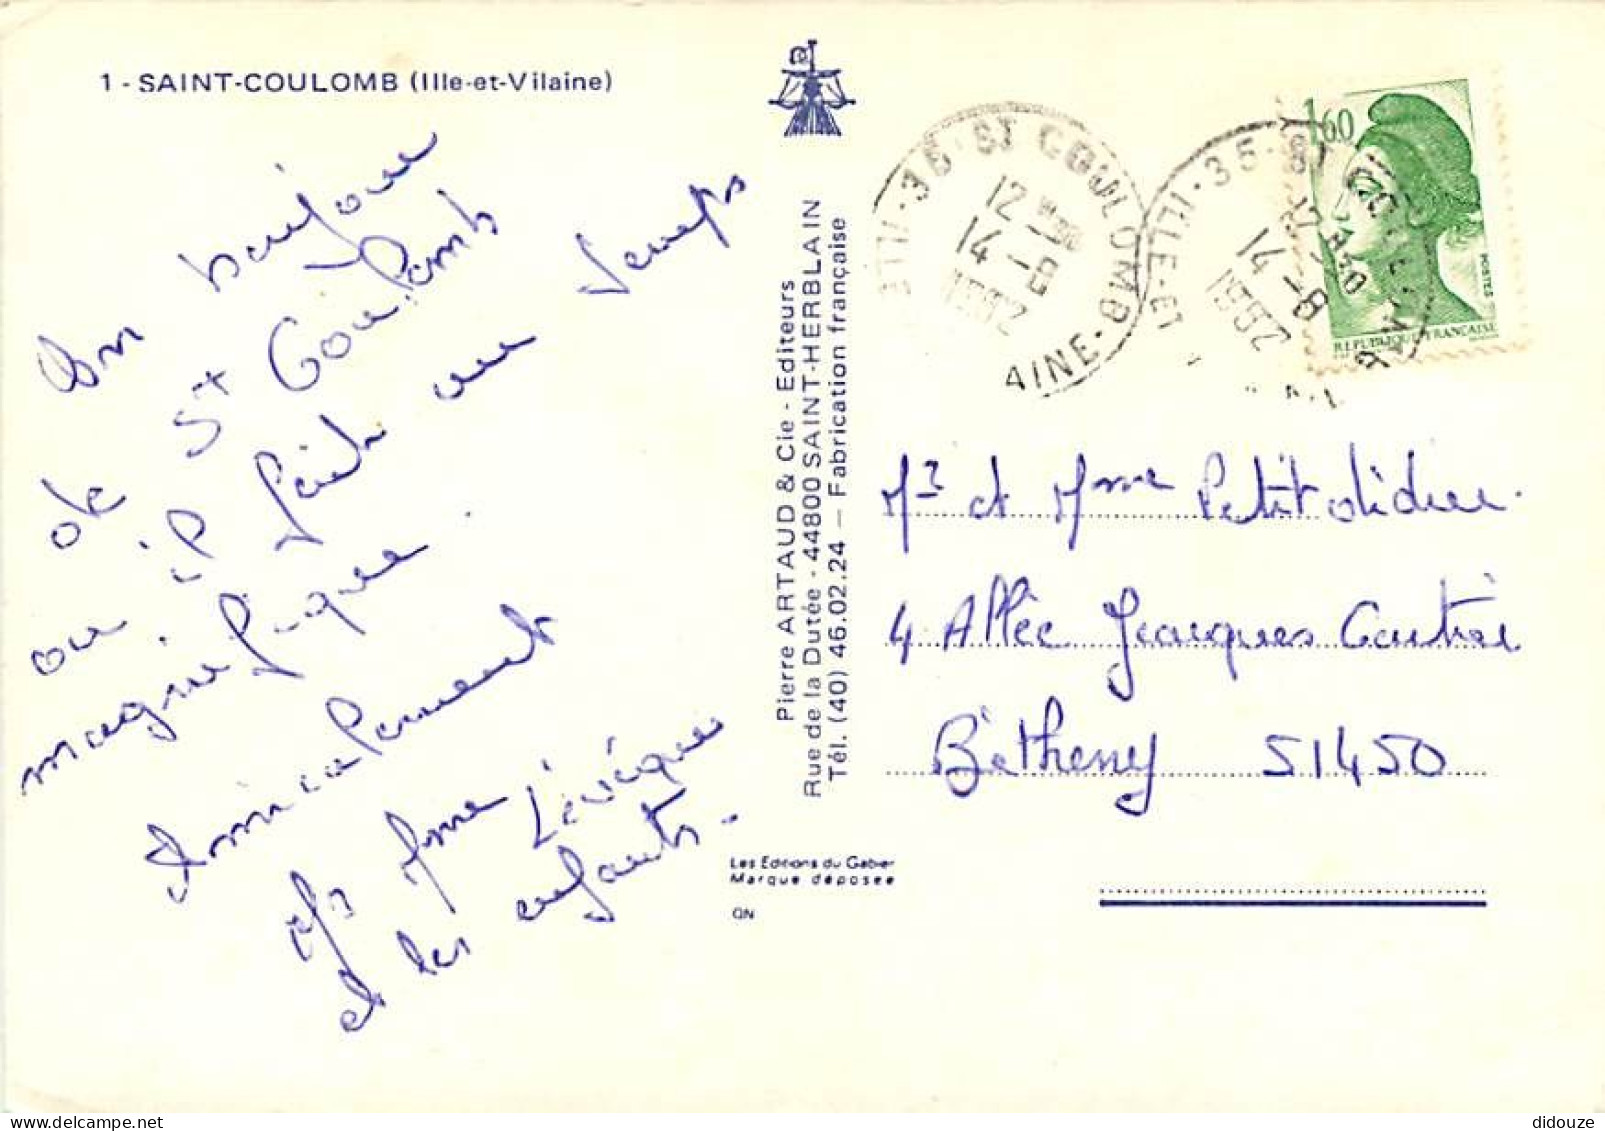 1 - SAINT-COULOMB (Ille-et-Vilaine)
Un bonjour
de St Coulomb
ou il fait un temps
magnifique.
Amicalement
Mr Mme Lévêque
et les enfants.
Pierre ARTAUD & Cie - Editeurs
Rue de la Dutée - 44800 SAINT-HERBLAIN
Tél. (40) 46.02.24 — Fabrication française
Les Editions du Gabier
Marque déposée
GN
35 - ST COULOMB
ILLE-ET-
AINE
12 H
14 - 8
1982
ILLE-ET-
35 - ST COULOMB
12 H
14 - 8
1982
1,60
POSTES
REPUBLIQUE FRANÇAISE
Mr et Mme Petitdidier.
4 Allée Jacques Cartier
Bétheny 51450
didouze